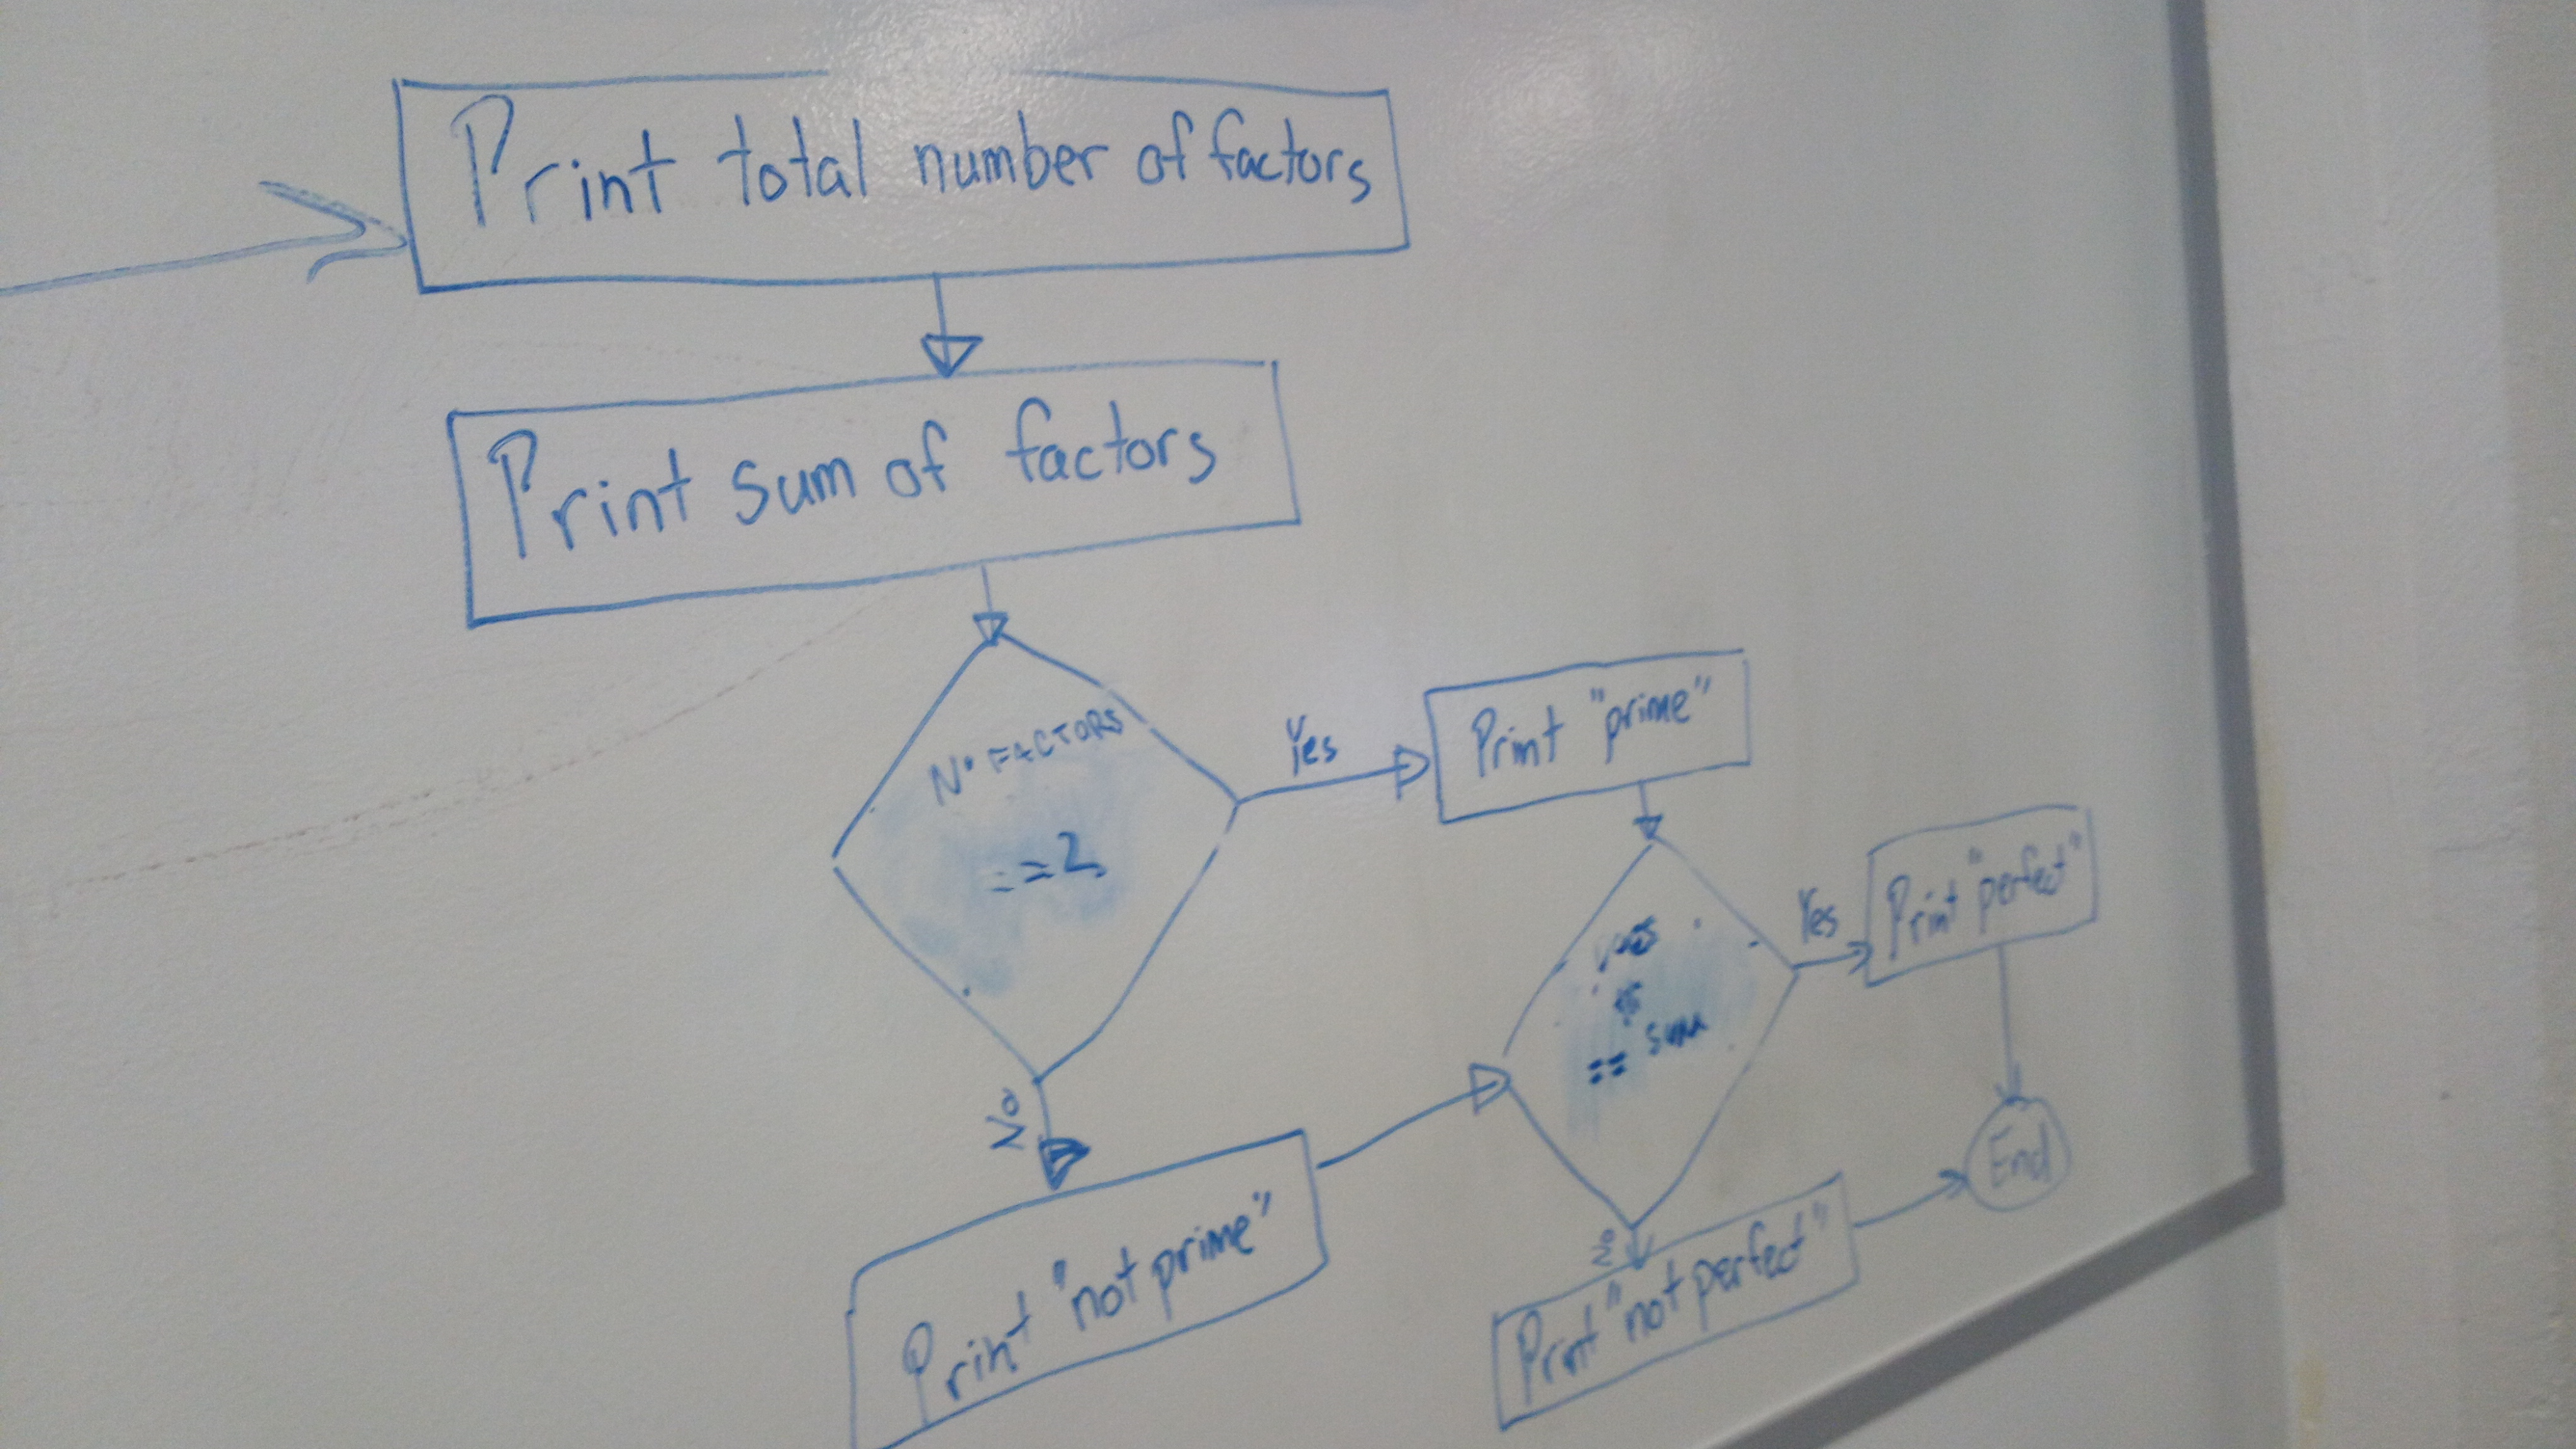 Print total number of factors
Print sum of factors
N° FACTORS
==2
Yes
Print "prime"
No
Print "not prime"
== sum
Yes
Print "perfect"
No
Print "not perfect"
End